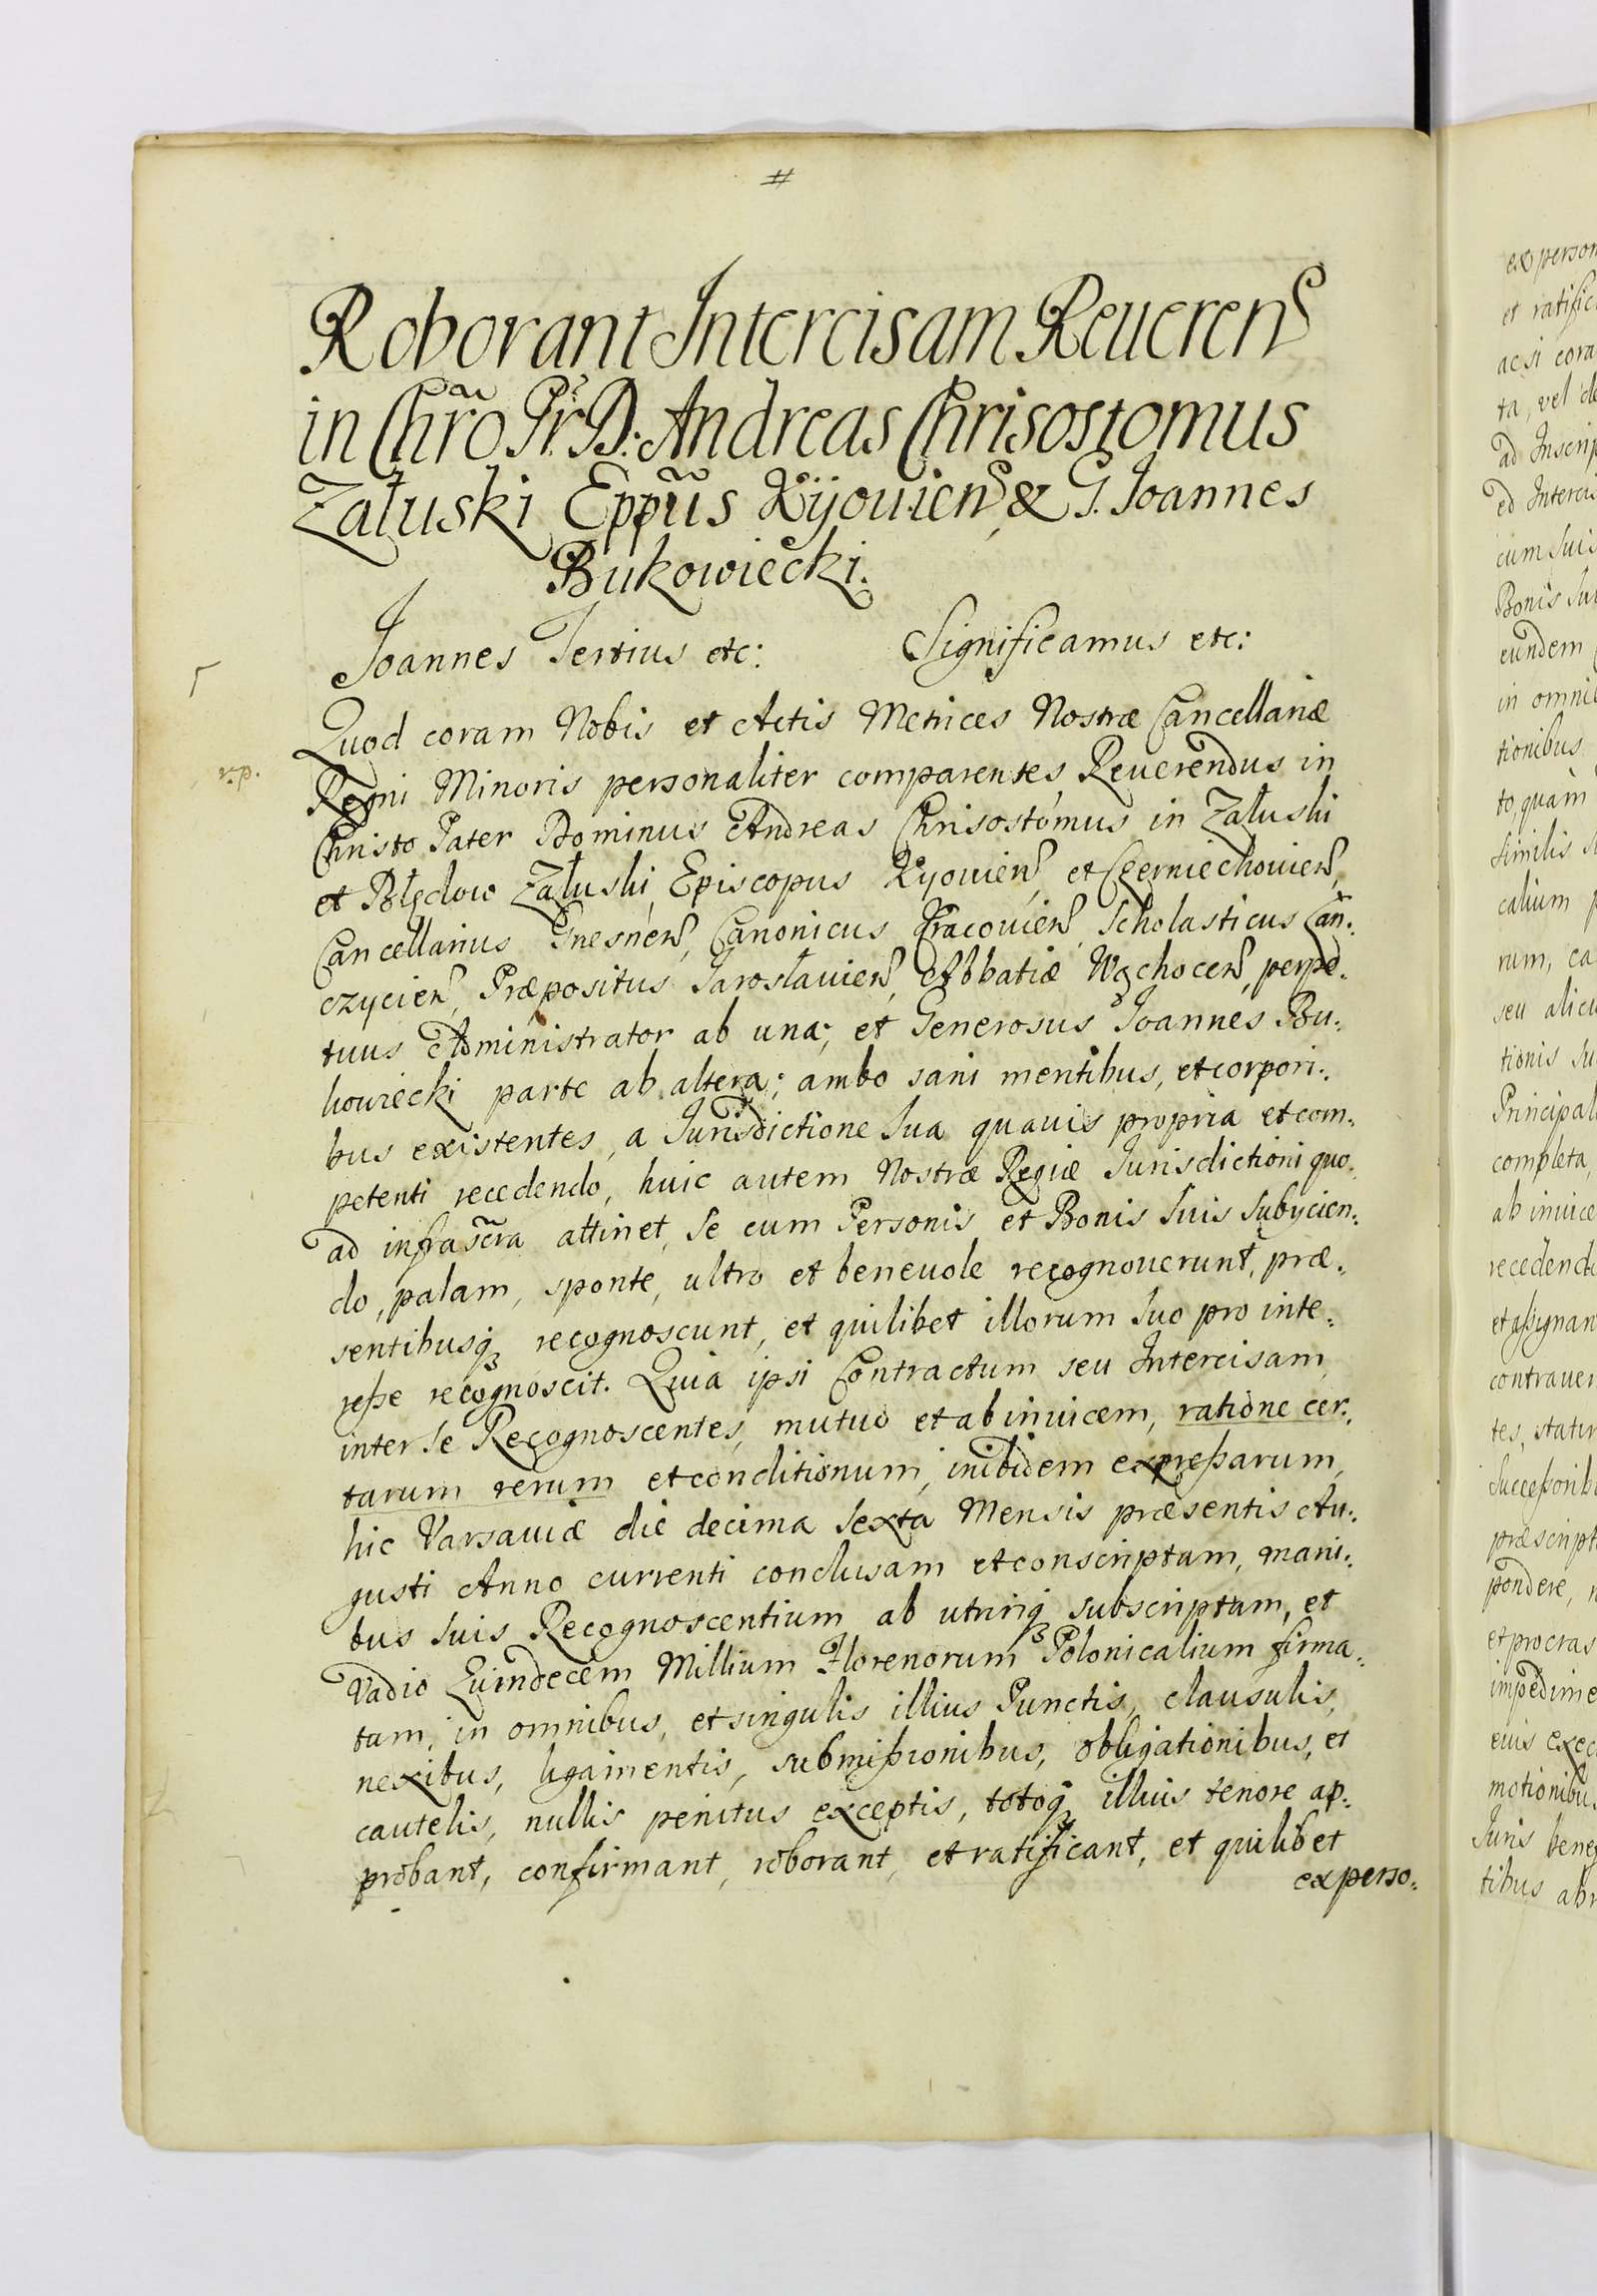 #
Roborant Intercisam Reueren͂
in Chr͂o Pr͂ D. Andreas Chrisostomus
Załuski Epp͂us Kÿouien͂ & G. Joannes
Bukowiecki.
Joannes Tertius etc: Significamus etc:
Quod coram Nobis et Actis Metrices Nostræ Cancellariæ
r.p.
Regni Minoris personaliter comparentes, Reuerendus in
Christo Pater Dominus Andreas Chrisostomus in Załuski
et Błędow Załuski, Episcopus Kyouien͂, et Czerniechouien͂,
Cancellarius Gnesnen͂, Canonicus Cracouien͂, Scholasticus Lan:
czycien͂, Præpositus Jarosłauien͂, Abbatiæ Wąchocen͂, perpe:
tuus Administrator ab una; et Generosus Joannes Bu:
kowiecki parte ab altera; ambo sani mentibus, et corpori:
bus existentes, a Jurisdictione Sua quauis propria et com:
petenti recedendo, huic autem Nostræ Regiæ Jurisdictioni quo:
ad infrascr͂a attinet, Se cum Personis et Bonis Suis Subycien:
do, palam, sponte, ultro et beneuole recognouerunt, præ:
sentibusq̃ recognoscunt, et quilibet illorum Suo pro inte:
reße recognoscit. Quia ipsi Contractum seu Intercisam
inter Se Recognoscentes, mutuo et ab inuicem, ratione cer:
tarum rerum et conditionum, inibidem expreßarum,
hic Varsauiæ die decima Sexta Mensis præsentis Au:
gusti Anno currenti conclusam et conscriptam, mani:
bus Suis Recognoscentium ab utrinq̃ subscriptam, et
Vadio Quindecem Millium Florenorum Polonicalium firma:
tam, in omnibus, et singulis illius Punctis, clausulis,
nexibus, ligamentis, submißionibus, obligationibus, et
cautelis, nullis penitus exceptis, totoq̃ illius tenore ap:
probant, confirmant, roborant, et ratificant, et quilibet
ex perso: